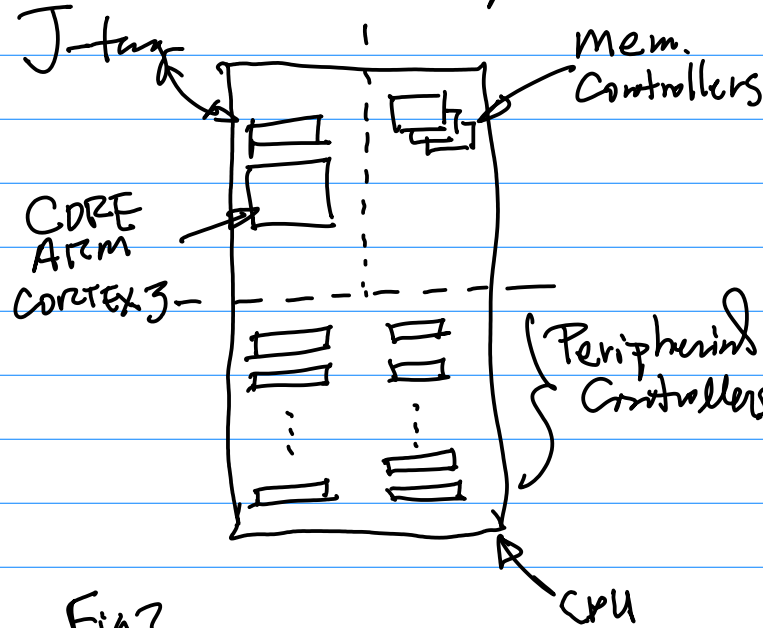 J-tag
mem.
Controllers
CORE
ARM
CORTEX 3
Peripherial
Controllers
CPU